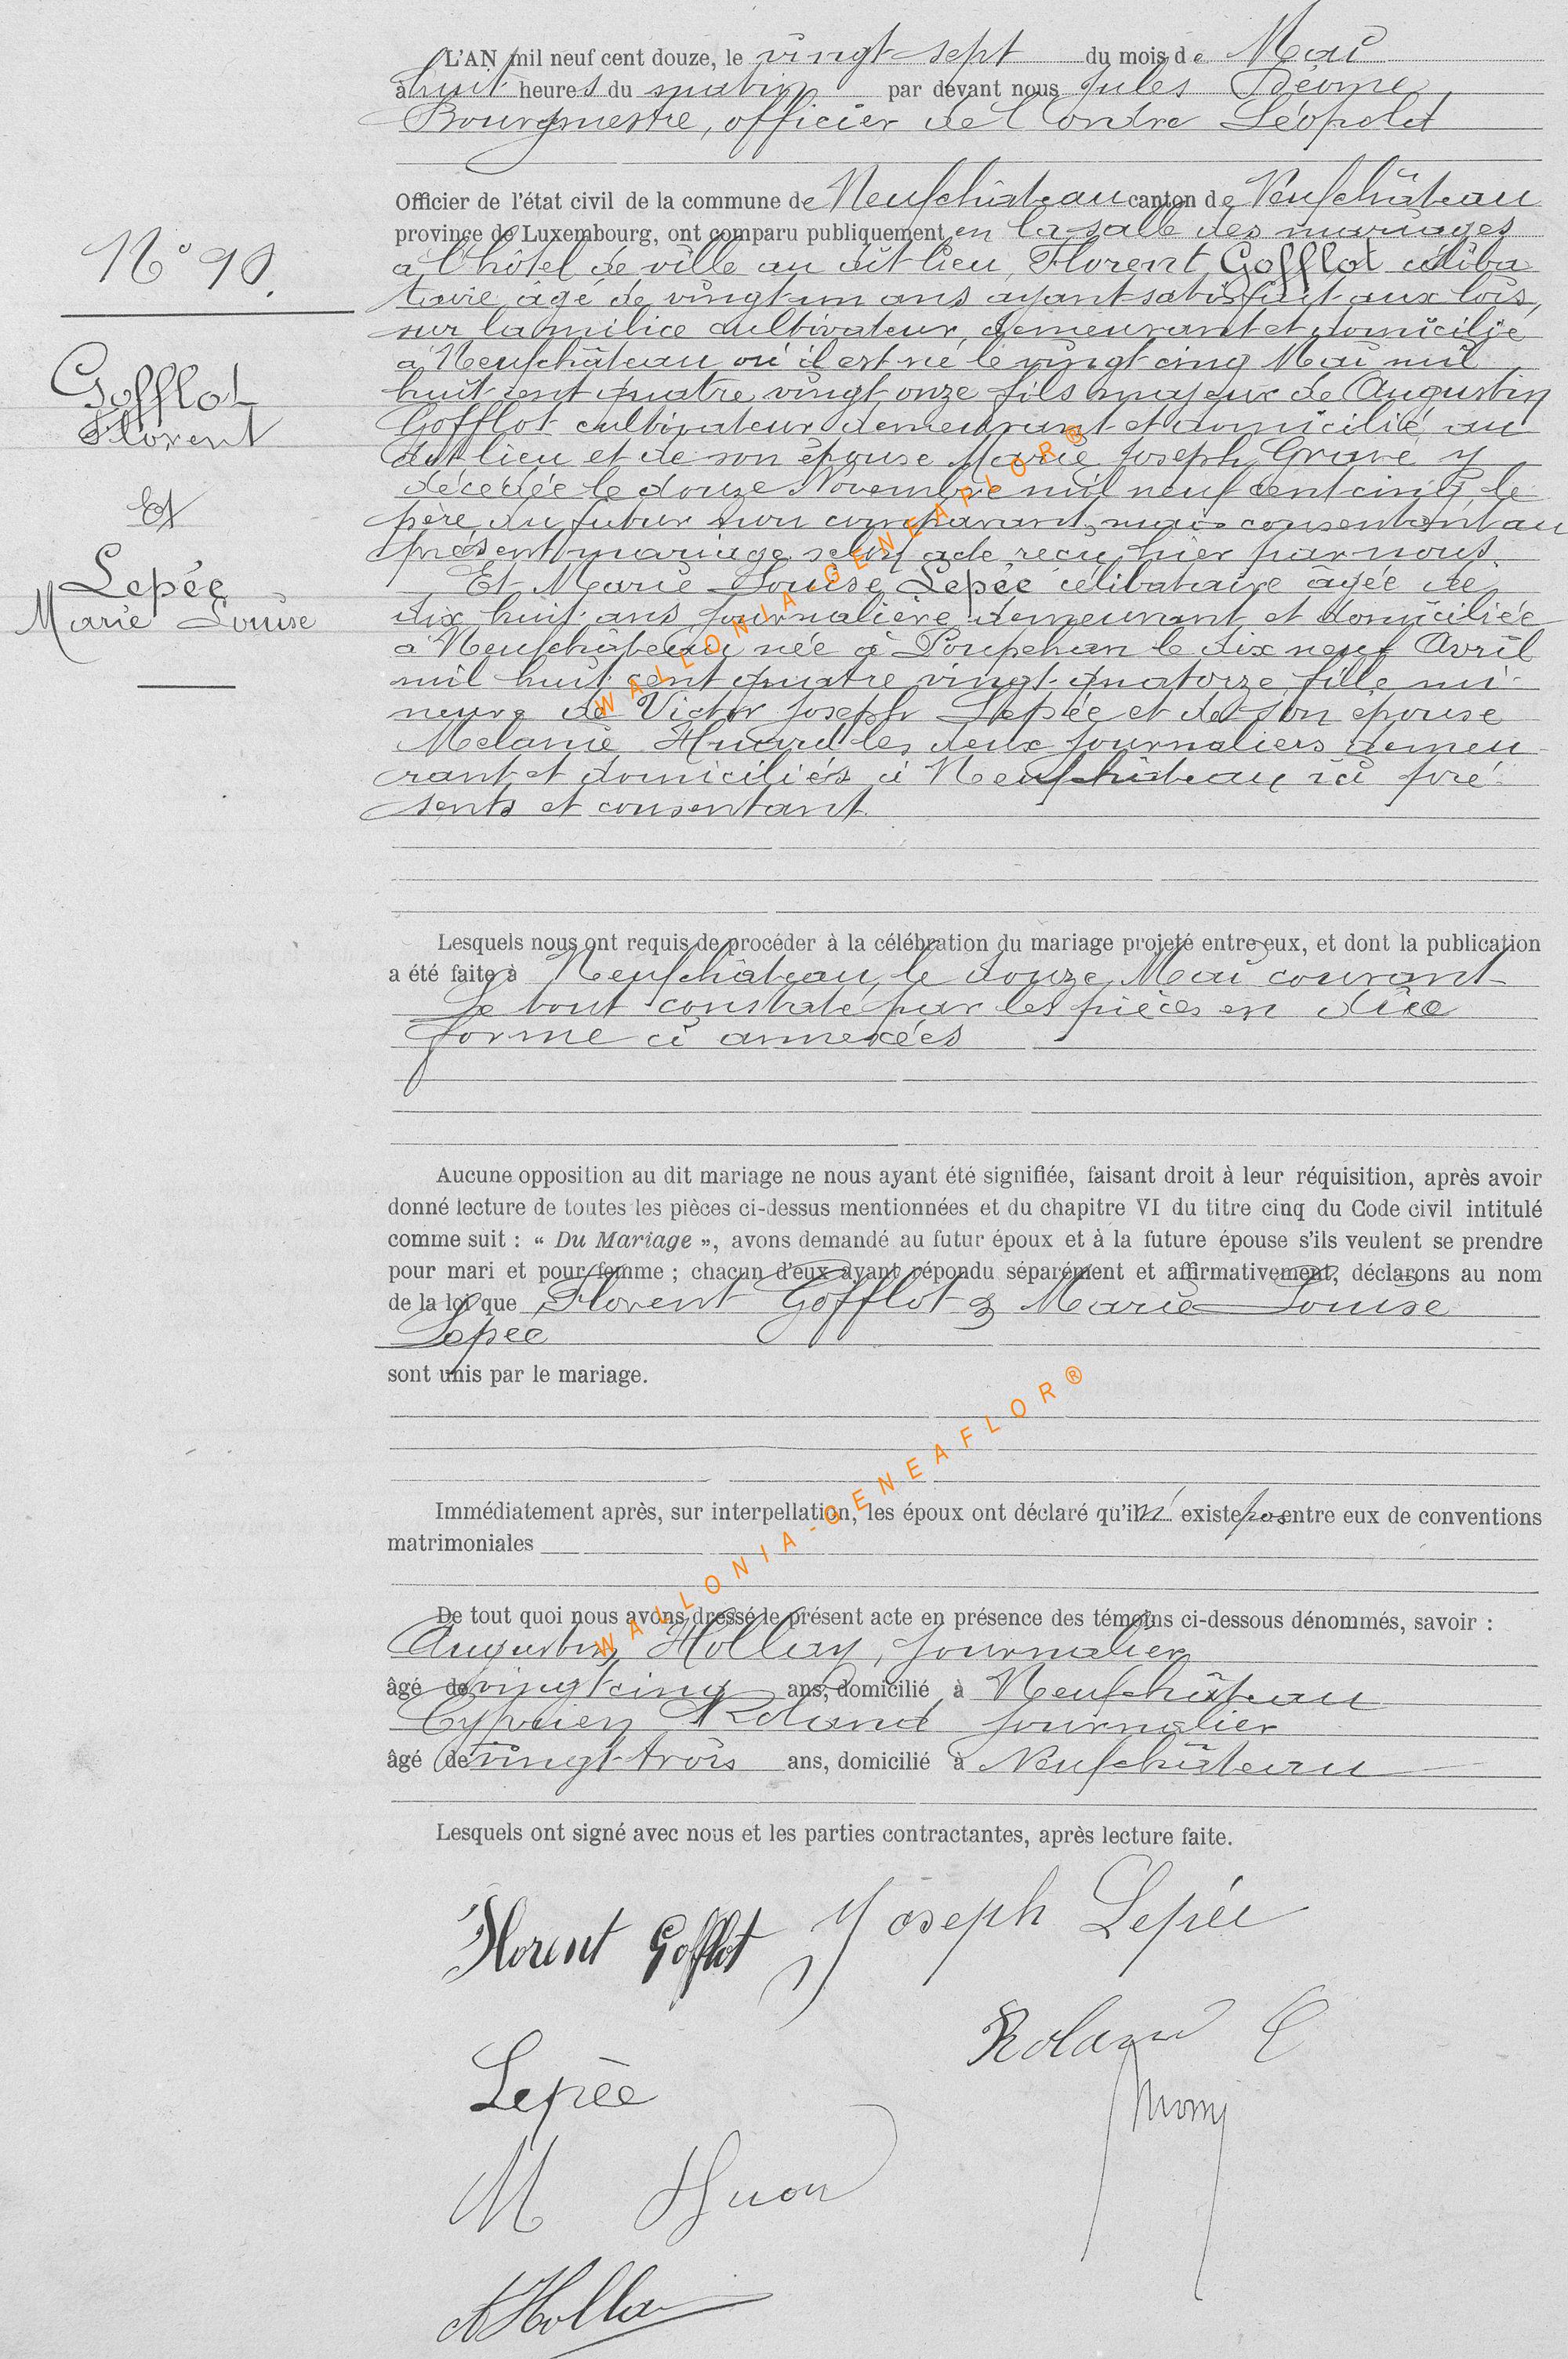 L'AN mil neuf cent douze, le vingt-sept du mois de Mai
à huit heures du matin par devant nous Jules
Bourgmestre, officier de l'Ordre Léopold
Officier de l'état civil de la commune de Neufchâteau canton de Neufchâteau
province de Luxembourg, ont comparu publiquement en la salle des mariages
N°
à l'hôtel de ville au dit lieu, Florent Gofflot céliba
taire âgé de vingt-un ans ayant satisfait aux lois,
sur la milice cultivateur, demeurant et domicilié
à Neufchâteau où il est né le vingt cinq Mai mil
huit cent quatre vingt onze fils majeur de Augustin
Gofflot
Florent
Gofflot cultivateur demeurant et domicilié au
dit lieu et de son épouse Marie Joseph y
décédée le douze Novembre mil neuf cent cinq, le
Et
père du futur non comparant, mais consentant au
présent mariage selon acte reçu hier par nous
Lepée
Marie Louise
Et Marie Louise Lepée célibataire âgée de
dix huit ans journalière demeurant et domiciliée
à Neufchâteau, née à Poupehan le dix neuf Avril
mil huit cent quatre vingt-quatorze, fille mi-
neure de Victor Joseph Lepée et de son épouse
Mélanie Huard les deux journaliers demeu
rant et domiciliés à Neufchâteau, ici pré-
sents et consentant.
Lesquels nous ont requis de procéder à la célébration du mariage projeté entre eux, et dont la publication
a été faite à Neufchâteau, le douze Mai courant
Le tout constaté par les pièces en due
forme ci annexées
Aucune opposition au dit mariage ne nous ayant été signifiée, faisant droit à leur réquisition, après avoir
donné lecture de toutes les pièces ci-dessus mentionnées et du chapitre VI du titre cinq du Code civil intitulé
comme suit : « Du Mariage », avons demandé au futur époux et à la future épouse s'ils veulent se prendre
pour mari et pour femme ; chacun d'eux ayant répondu séparément et affirmativement, déclarons au nom
de la loi que Florent Gofflot & Marie Louise
Lepée
sont unis par le mariage.
Immédiatement après, sur interpellation, les époux ont déclaré qu'il n' existe pas entre eux de conventions
matrimoniales
De tout quoi nous avons dressé le présent acte en présence des témoins ci-dessous dénommés, savoir :
Augustin Hollay, journalier
âgé de vingt cinq ans, domicilié à Neufchâteau
Cyprien Roland journalier
âgé de vingt-trois ans, domicilié à Neufchâteau
Lesquels ont signé avec nous et les parties contractantes, après lecture faite.
Florent Gofflot Joseph Lepée
Roland C
Lepée
M Huar
A Holla
WALLONIA-GENEAFLOR®
WALLONIA-GENEAFLOR®